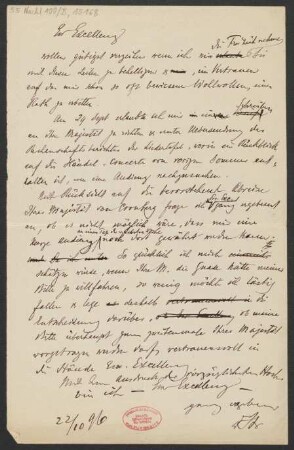 Ew Excellenz
wollen gütigst verzeihen wenn ich mir die Freiheit nehme Sie
mit diesen Zeilen zu belästigen u. im Vertrauen
auf das mir schon so oft bewiesene Wohlwollen, um
Rath zu
Am 2ten Sept erlaubte ich mir ein Schreiben
an Ihre Majestät zu richten u unter Übersendung des
Rechenschaftsberichtes der Liedertafel, sowie im Rückblick
auf die Händel-Concerte vom vorigen Sommer
um eine Audienz nachzusuchen
Mit Rücksicht auf die bevorstehende Abreise
Ihrer Majestät von Cronberg frage ich ganz ergebenst
an, ob es nicht möglich wäre, dass mir eine
kurze Audienz noch dort gewährt werden kann.
So glücklich ich mich
schätzen würde, wenn Ihre M. die Gnade hätte meiner
Bitte zu willfahren, so wenig möchte ich lästig
fallen u lege deshalb die
Entscheidung darüber, ob meine
Bitte überhaupt zum zweitenmale Ihrer Majestät
vorgetragen werden darf vertrauensvoll in
die Hände Eur. Excellenz.
Mit dem Ausdruck der vorzüglichsten Hoch.
bin ich – Eur Excellenz –
ganz ergebener
22/10 96